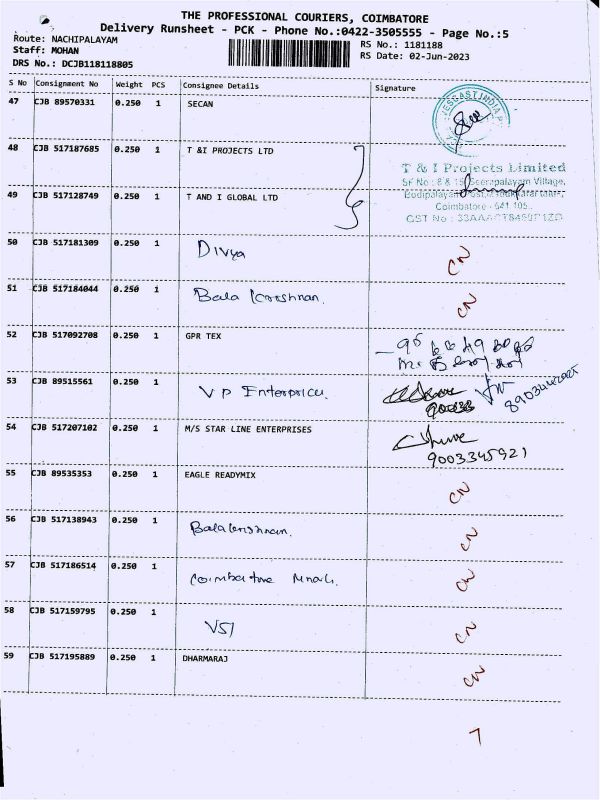 THE PROFESSIONAL COURIERS, COIMBATORE
Delivery Runsheet - PCK - Phone No.:0422-3505555 - Page No.:5
Route: NACHIPALAYAM
Staff: MOHAN
DRS No.: DCJB118118805
RS No.: 1181188
RS Date: 02-Jun-2023
S No Consignment No Weight PCS Consignee Details Signature
47 CJB 89570331 0.250 1 SECAN
48 CJB 517187685 0.250 1 T &I PROJECTS LTD
T & I Projects Limited
49 CJB 517128749 0.250 1 T AND I GLOBAL LTD
Coimbatore - 641 105.
50 CJB 517181309 0.250 1 Divya CN
51 CJB 517184044 0.250 1 Bala Krishnan. CN
52 CJB 517092708 0.250 1 GPR TEX
53 CJB 89515561 0.250 1 VP Enterprices.
54 CJB 517207102 0.250 1 M/S STAR LINE ENTERPRISES
9003345921
55 CJB 89535353 0.250 1 EAGLE READYMIX CN
56 CJB 517138943 0.250 1 Balakrishnan. CN
57 CJB 517186514 0.250 1 Coimbatore CN
58 CJB 517159795 0.250 1 VSI CN
59 CJB 517195889 0.250 1 DHARMARAJ CN
7